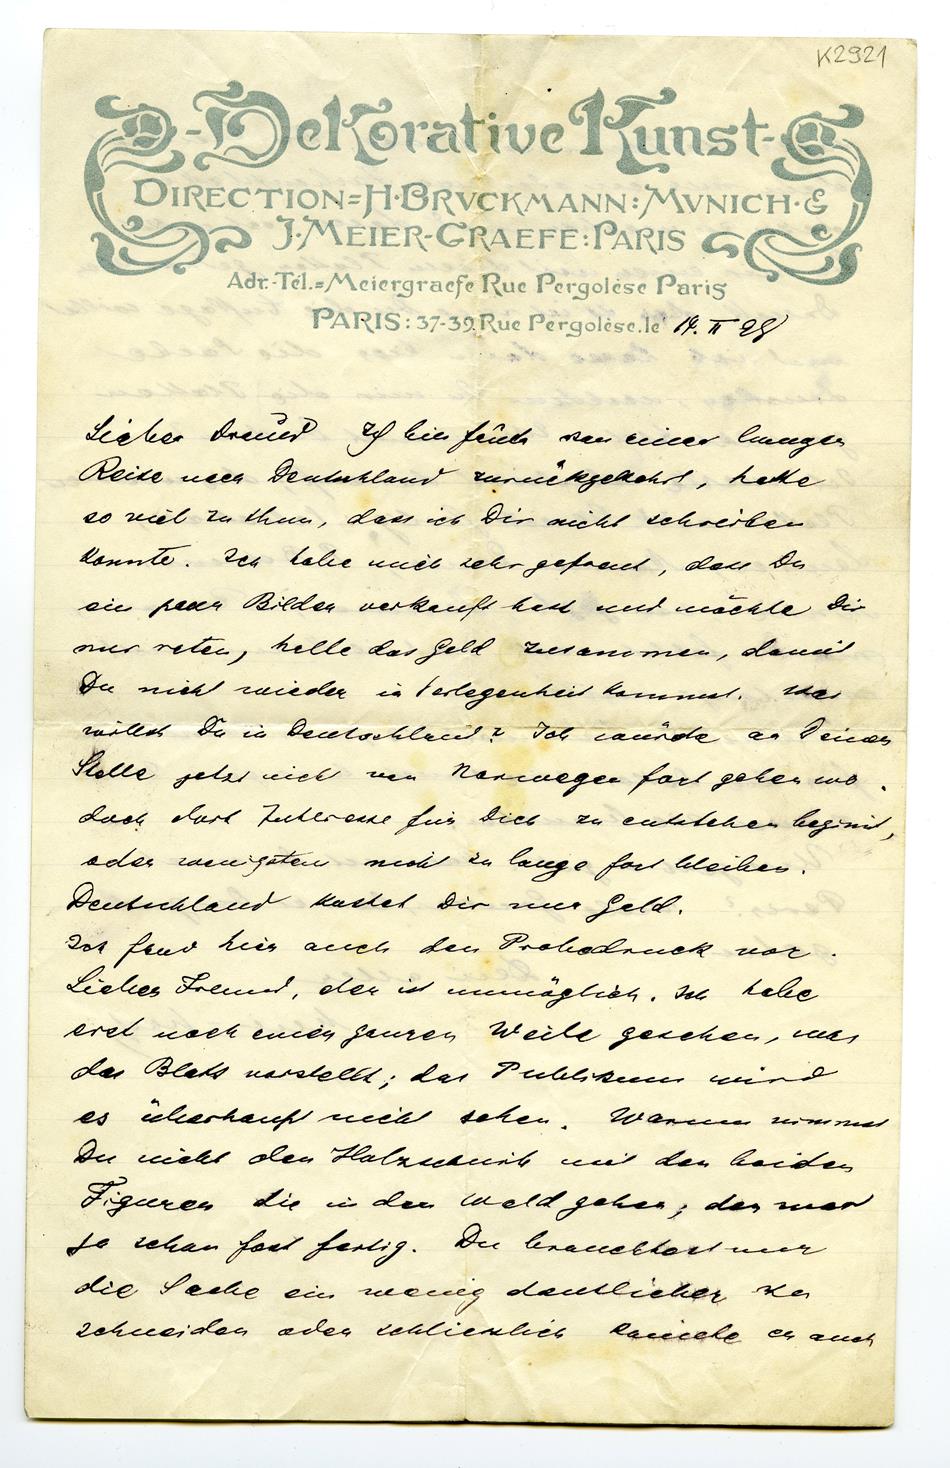 K2921
DeKorative Kunst
DIRECTION=H·BRVCKMANN:MVNICH·&
J·MEIER-GRAEFE:PARIS
Adr.-Tél.=Meiergraefe Rue Pergolèse Paris
PARIS: 37-39, Rue Pergolèse. le 14. II 98
Lieber Freund Ich bin von einer langen
Reise nach Deutschland zurückgekehrt, hatte
so viel zu thun, dass ich Dir nicht schreiben
konnte. Ich habe mich sehr gefreut, dass Du
ein paar Bilder verkauft hast und möchte Dir
nur raten, halte das Geld zusammen, damit
Du nicht wieder in Verlegenheit kommst. Was
willst Du in Deutschland? Ich würde an Deiner
Stelle jetzt nicht von Norwegen fort gehen wo
doch dort Interesse für Dich zu entstehen beginnt,
oder wenigsten nicht zu lange fort bleiben.
Deutschland kostet Dir nur Geld.
Ich fand hier auch den Probedruck vor.
Lieber Freund, der ist unmöglich. Ich habe
erst nach einer ganzen Weile gesehen, was
das Blatt vorstellt; das Publikum wird
es überhaupt nicht sehen. Warum nimmst
Du nicht den Holzschnitt mit den beiden
Figuren die in den Wald gehen, der war
ja schon fast fertig. Du brauchtest nur
die Sache ein wenig deutlicher zu
schneiden oder schliesslich könnte er auch